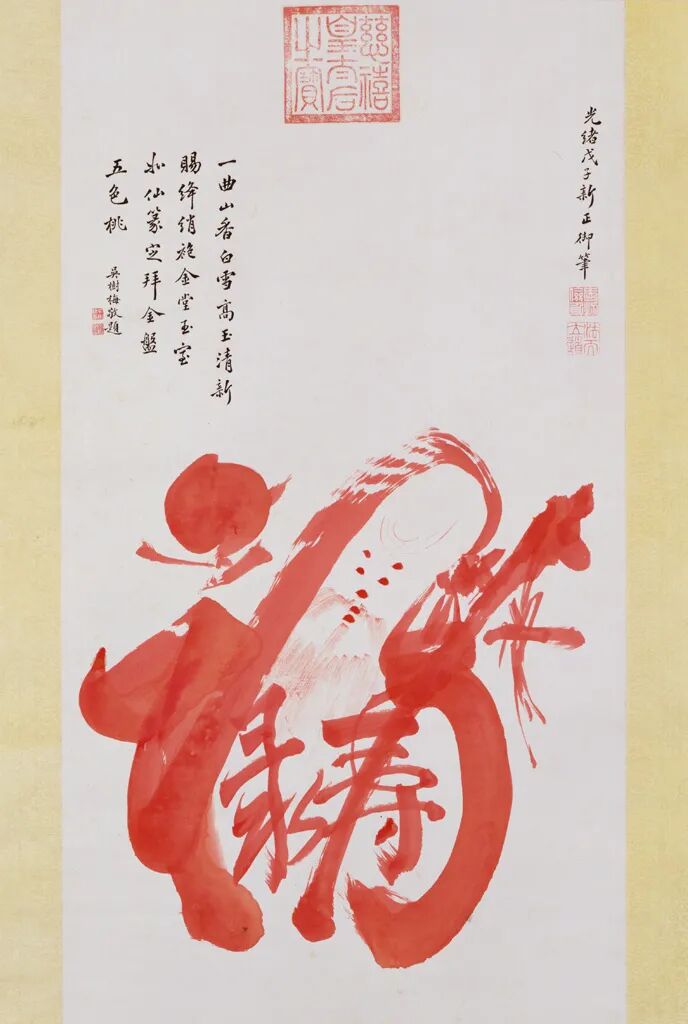 慈禧
皇太后
之寶
光緒戊子新正御筆
一曲山香白雪高玉清新
賜絳綃袍金堂玉室
如仙篆定拜金盤
五色桃
吳樹梅敬題
录寿